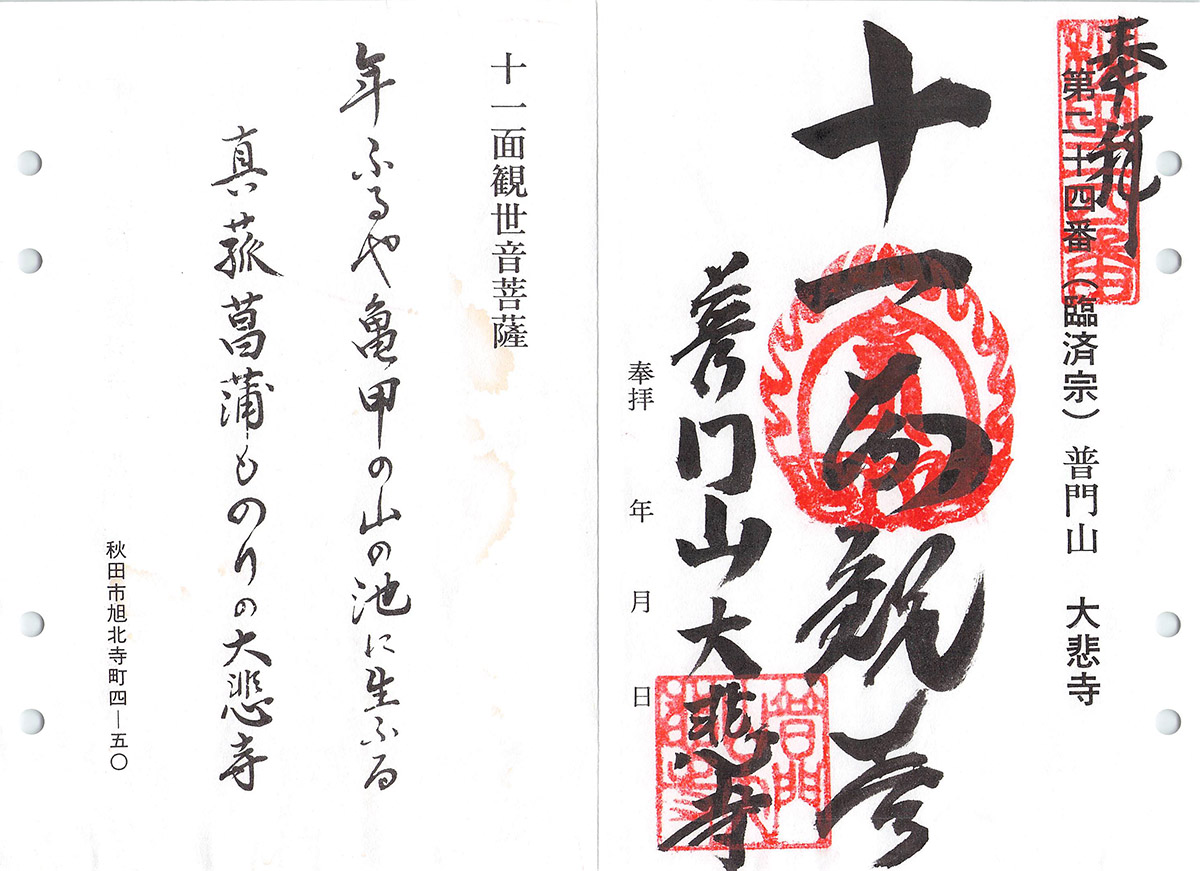 奉拝
第二十四番（臨済宗）普門山　大悲寺
十一面観音
普門山大悲寺
奉拝　年　月　日
十一面観世音菩薩
年ふるや亀甲の山の池に生ふる
真菰菖蒲ものりの大悲寺
秋田市旭北寺町四―五〇